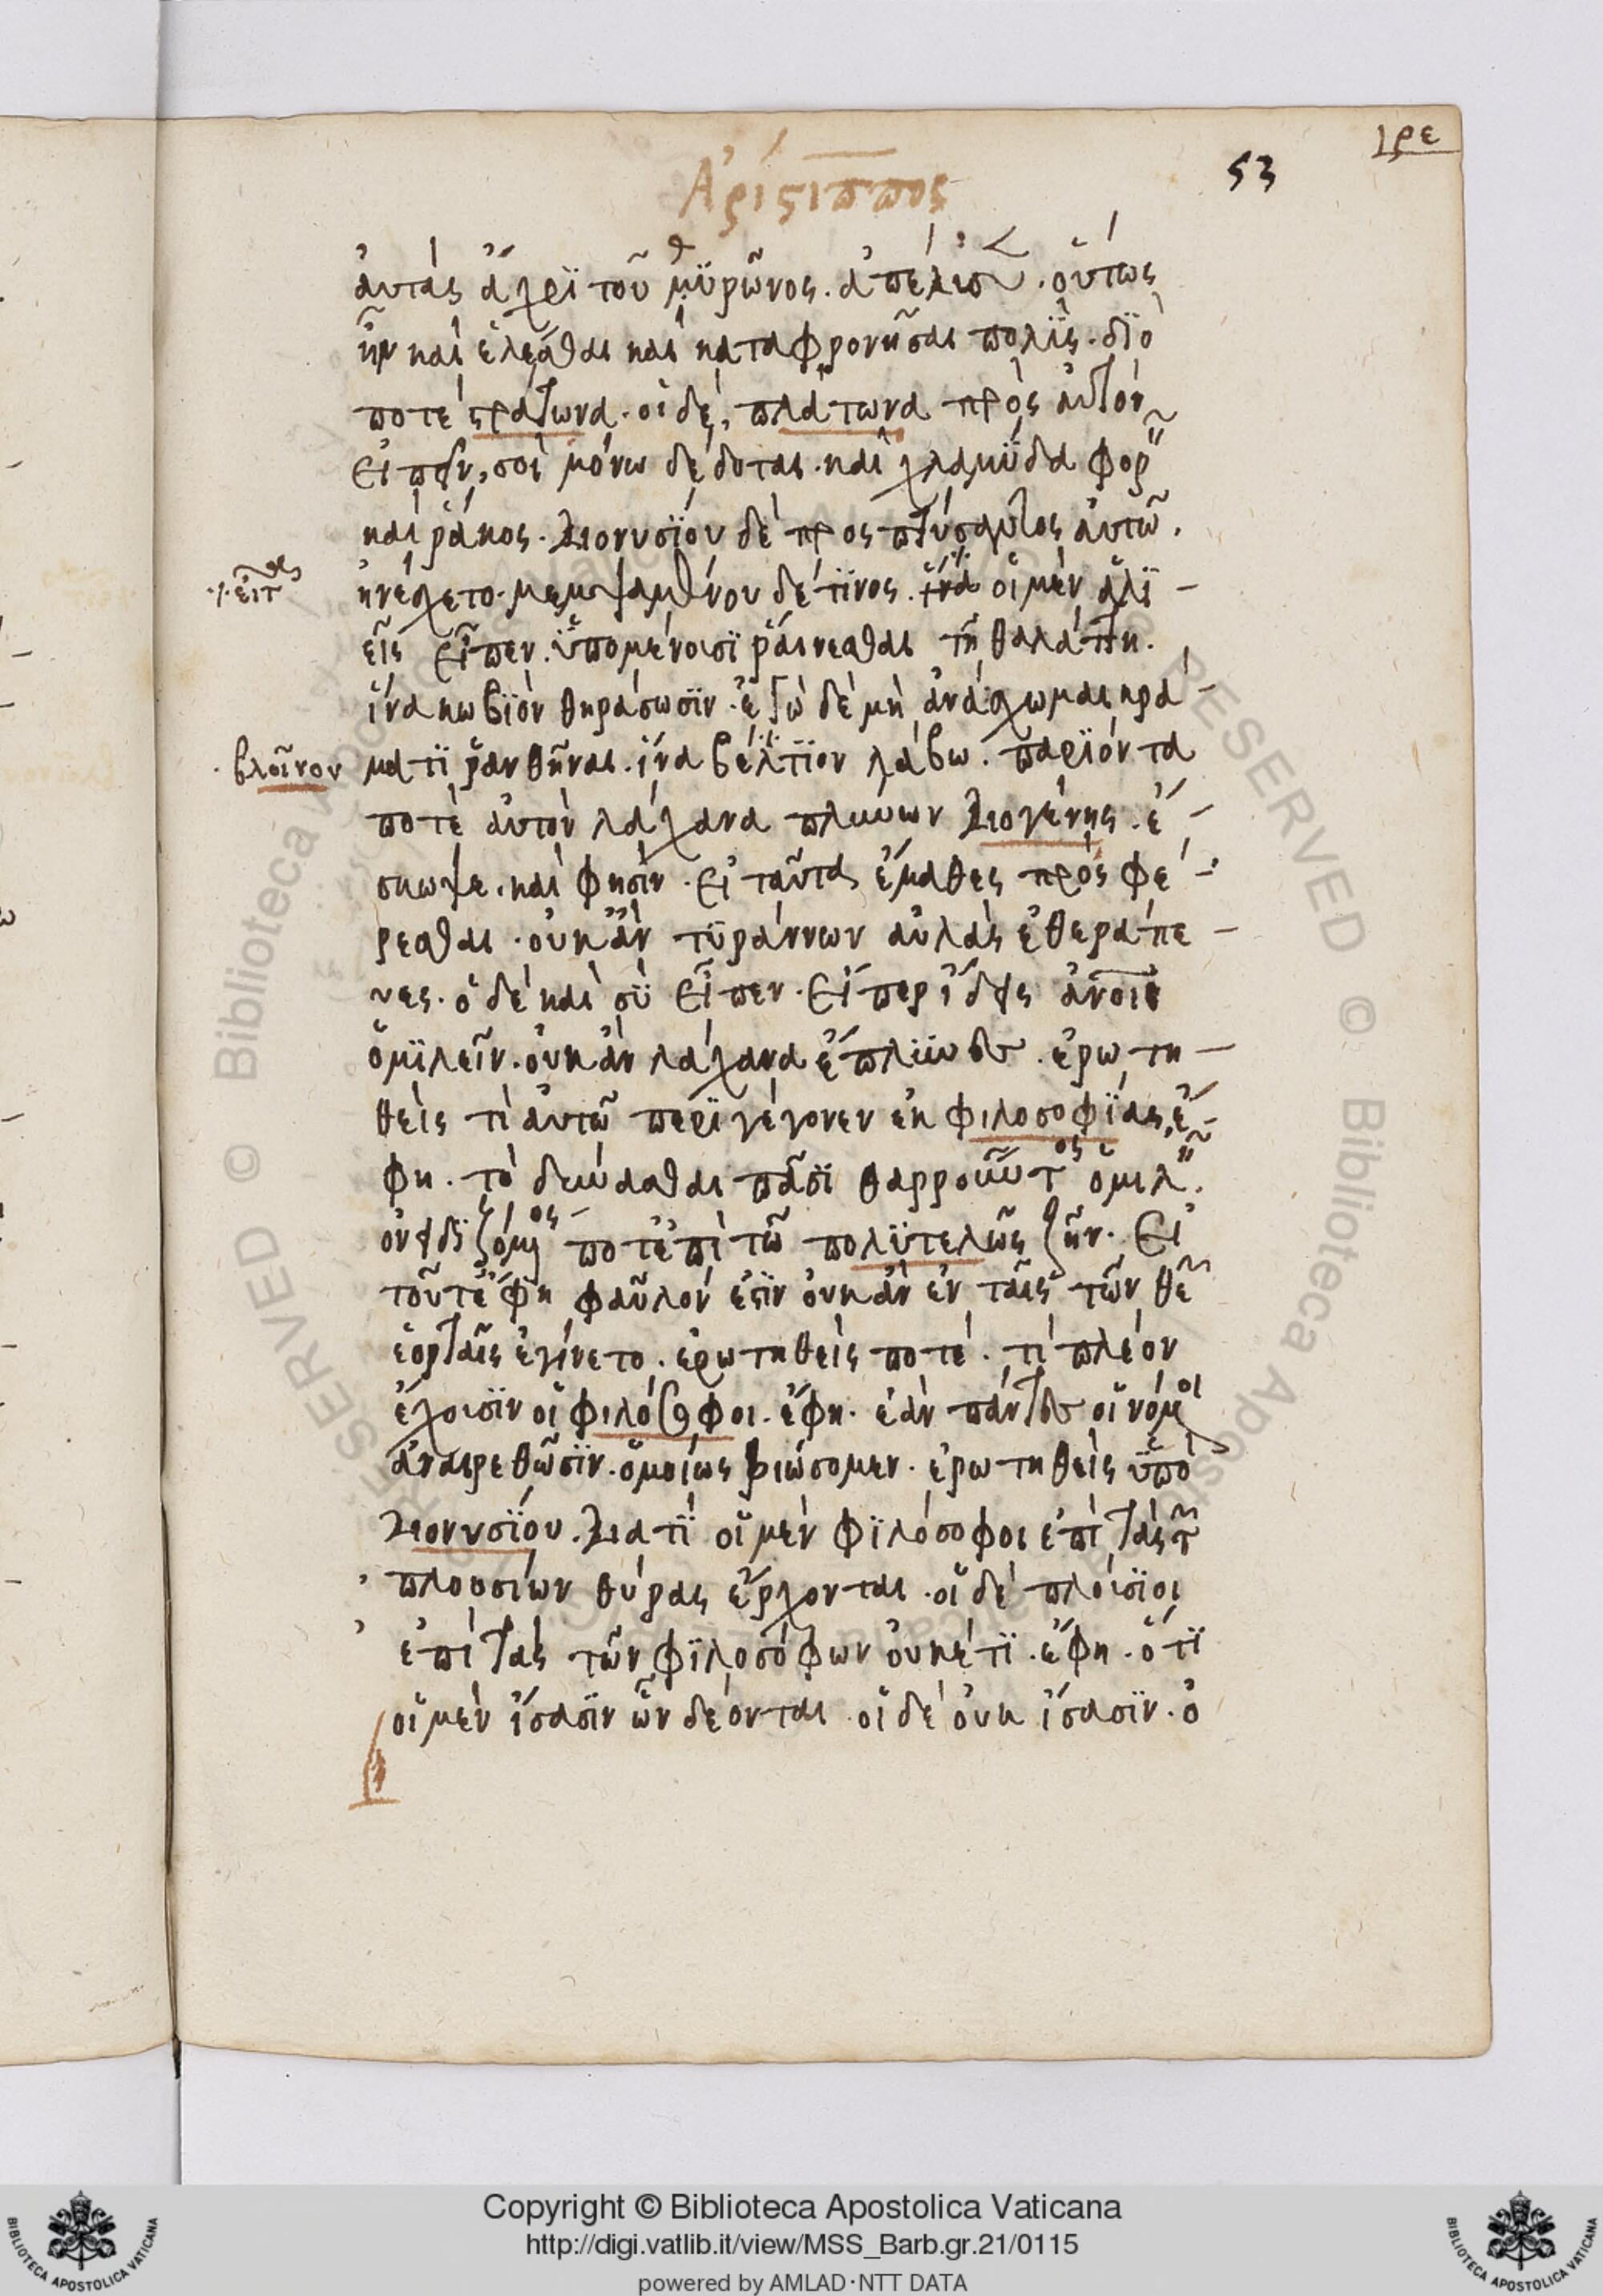 ιρε
53
Ἀρίστιππος
ἀυτάς ἄχρϊ τοῦ μϋρῶνος. ἀπέλυσεν. οὕτως
ἦν καὶ ἑλέσθαι καὶ καταφρονῆσαι πολϊς. δϊό
ποτέ στράτωνα. οἱ δέ, πλάτωνα πρὸς ἀυτὸν
εἰπεῖν, σοὶ μόνω δέδοται. καὶ χλαμΰδα φορεῖν
καὶ ῥάκος. Διονυσΐου δὲ προσπτύσαντος ἀυτῶ.
ἠνέσχετο. μεμψαμένου δέ τϊνος. ἵνα οἱ μὲν ἁλϊ –
·/· εἶτα
εῖς εἶπεν. ὑπομένουσϊ ῥαίνεσθαι τῆ θαλάττη.
ἵνα κωβϊὸν θηράσωσϊν. ἐγὼ δὲ μὴ ἀνάσχωμαι κρά –
· βλαῖνον
ματϊ ῥανθῆναι. ἵνα βέλτϊον λάβω. παρϊόντα
ποτὲ ἀυτὸν λάχανα πλύνων Διογένης. ἔ –
σκωψε. καὶ φησὶν. εἰ ταῦτα ἔμαθες προσφέ –
ρεσθαι. οὐκ ἂν τϋράννων αὐλὰς ἐθεράπε –
υες. ὁ δὲ καὶ σὺ εἶπεν. εἴπερ ἤδεις ἀνοις
ὁμϊλεῖν. οὐκ ἂν λάχανα ἔπλϋνες. ἐρωτη –
θεὶς τί ἀυτῶ περϊγέγονεν ἐκ φιλοσοφΐας, ἔ –
φη. τὸ δύνασθαι πᾶσϊ θαρρούντως ὁμιλεῖν.
ὀνειδϊζόμενος ποτ' ἐπὶ τῶ πολϋτελῶς ζῆν. εἰ
τοῦτ' ἔφη φαῦλόν ἐστϊν οὐκ ἂν ἐν ταῖς τῶν θεῶν
ἑορταῖς ἐγίνετο. ἐρωτηθεὶς ποτέ. τί πλέον
ἔχουσϊν οἱ φιλόσοφοι. ἔφη. ἐὰν πάντες οἱ νόμοι
ἀναιρεθῶσϊν. ὁμοίως βιώσομεν. ἐρωτηθεὶς ὑπὸ
Διονυσΐου. Διατΐ οἱ μὲν φϊλόσοφοι ἐπὶ τὰς τῶν
πλουσίων θύρας ἔρχονται. οἱ δὲ πλούσϊοι
ἐπὶ τὰς τῶν φϊλοσόφων οὐκέτϊ. ἔφη. ὅτϊ
οἱ μὲν ἴσασϊν ὧν δέονται. οἱ δὲ οὐκ ἴσασϊν. ὁ
Copyright © Biblioteca Apostolica Vaticana
http://digi.vatlib.it/view/MSS_Barb.gr.21/0115
powered by AMLAD·NTT DATA